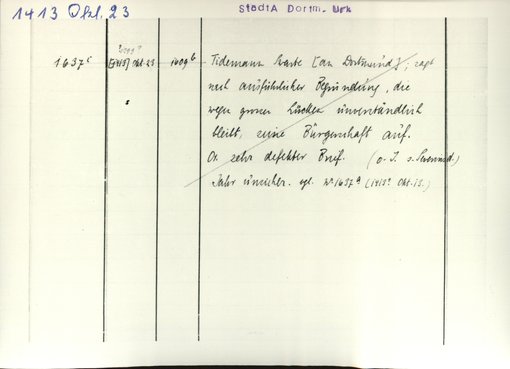 1413 Okt. 23
StadtA Dortm. Urk
1637c [1413] Okt. 23 1609b Tidemann [an Dortmund]; sagt
nach ausführlicher Begründung, die
wegen grosser Lücken unverständlich
bleibt, seine Bürgerschaft auf.
Or. sehr defekter Brief. (o. J. s. Severini d.)
Jahr unsicher. vgl. Nr. 1637a (1413? Okt. 13.)